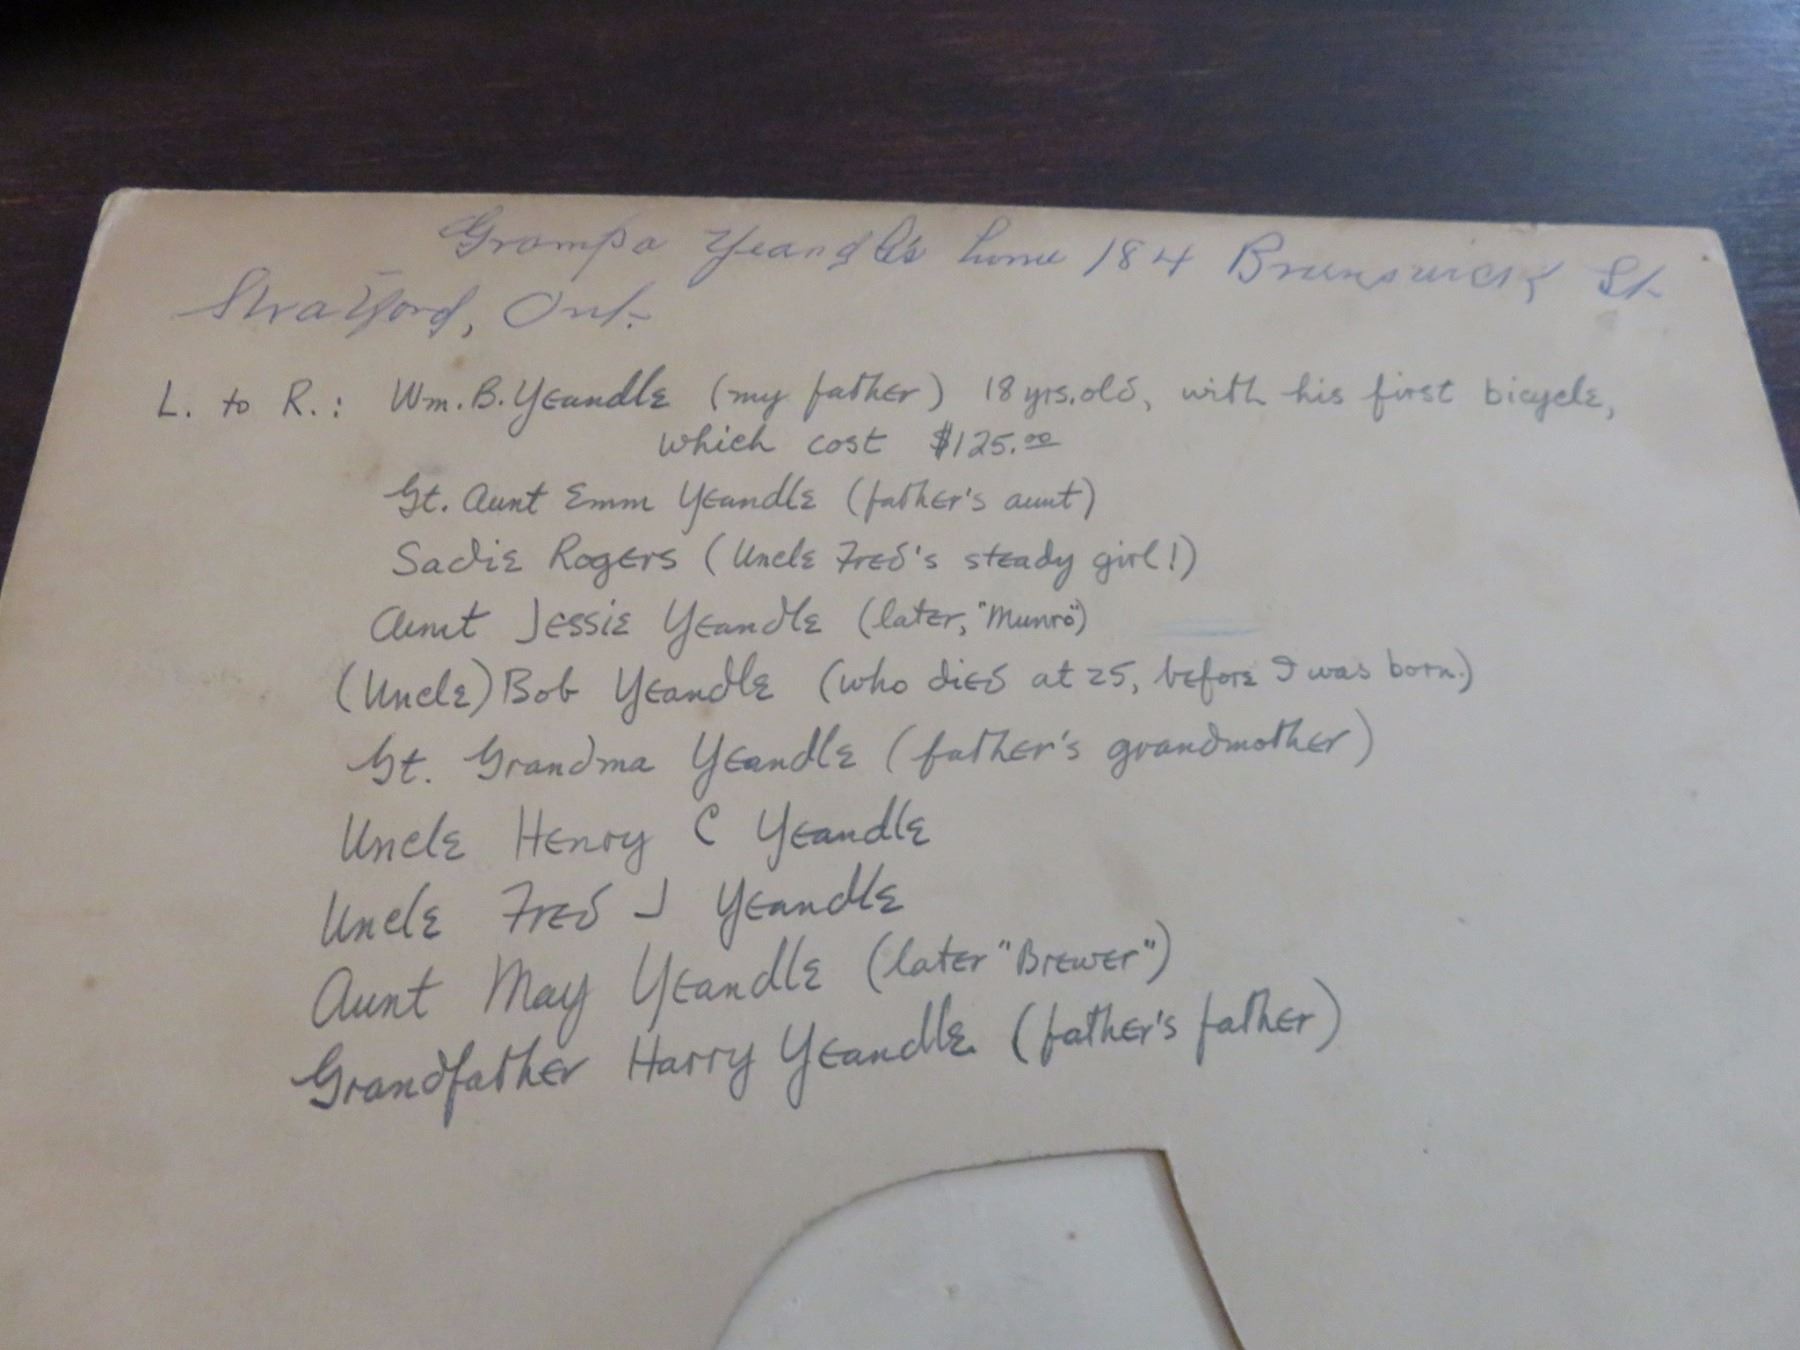 Grampa Yeandle's home 184 Brunswick St.
Stratford, Ont.
L. to R.: Wm. B. Yeandle (my father) 18 yrs. old, with his first bicycle,
which cost $125.00
Gt. Aunt Emm Yeandle (father's aunt)
Sadie Rogers (Uncle Fred's steady girl!)
Aunt Jessie Yeandle (later, "Munro")
(Uncle) Bob Yeandle (who died at 25, before I was born.)
Gt. Grandma Yeandle (father's grandmother)
Uncle Henry C Yeandle
Uncle Fred J Yeandle
Aunt May Yeandle (later "Brewer")
Grandfather Harry Yeandle (father's father)